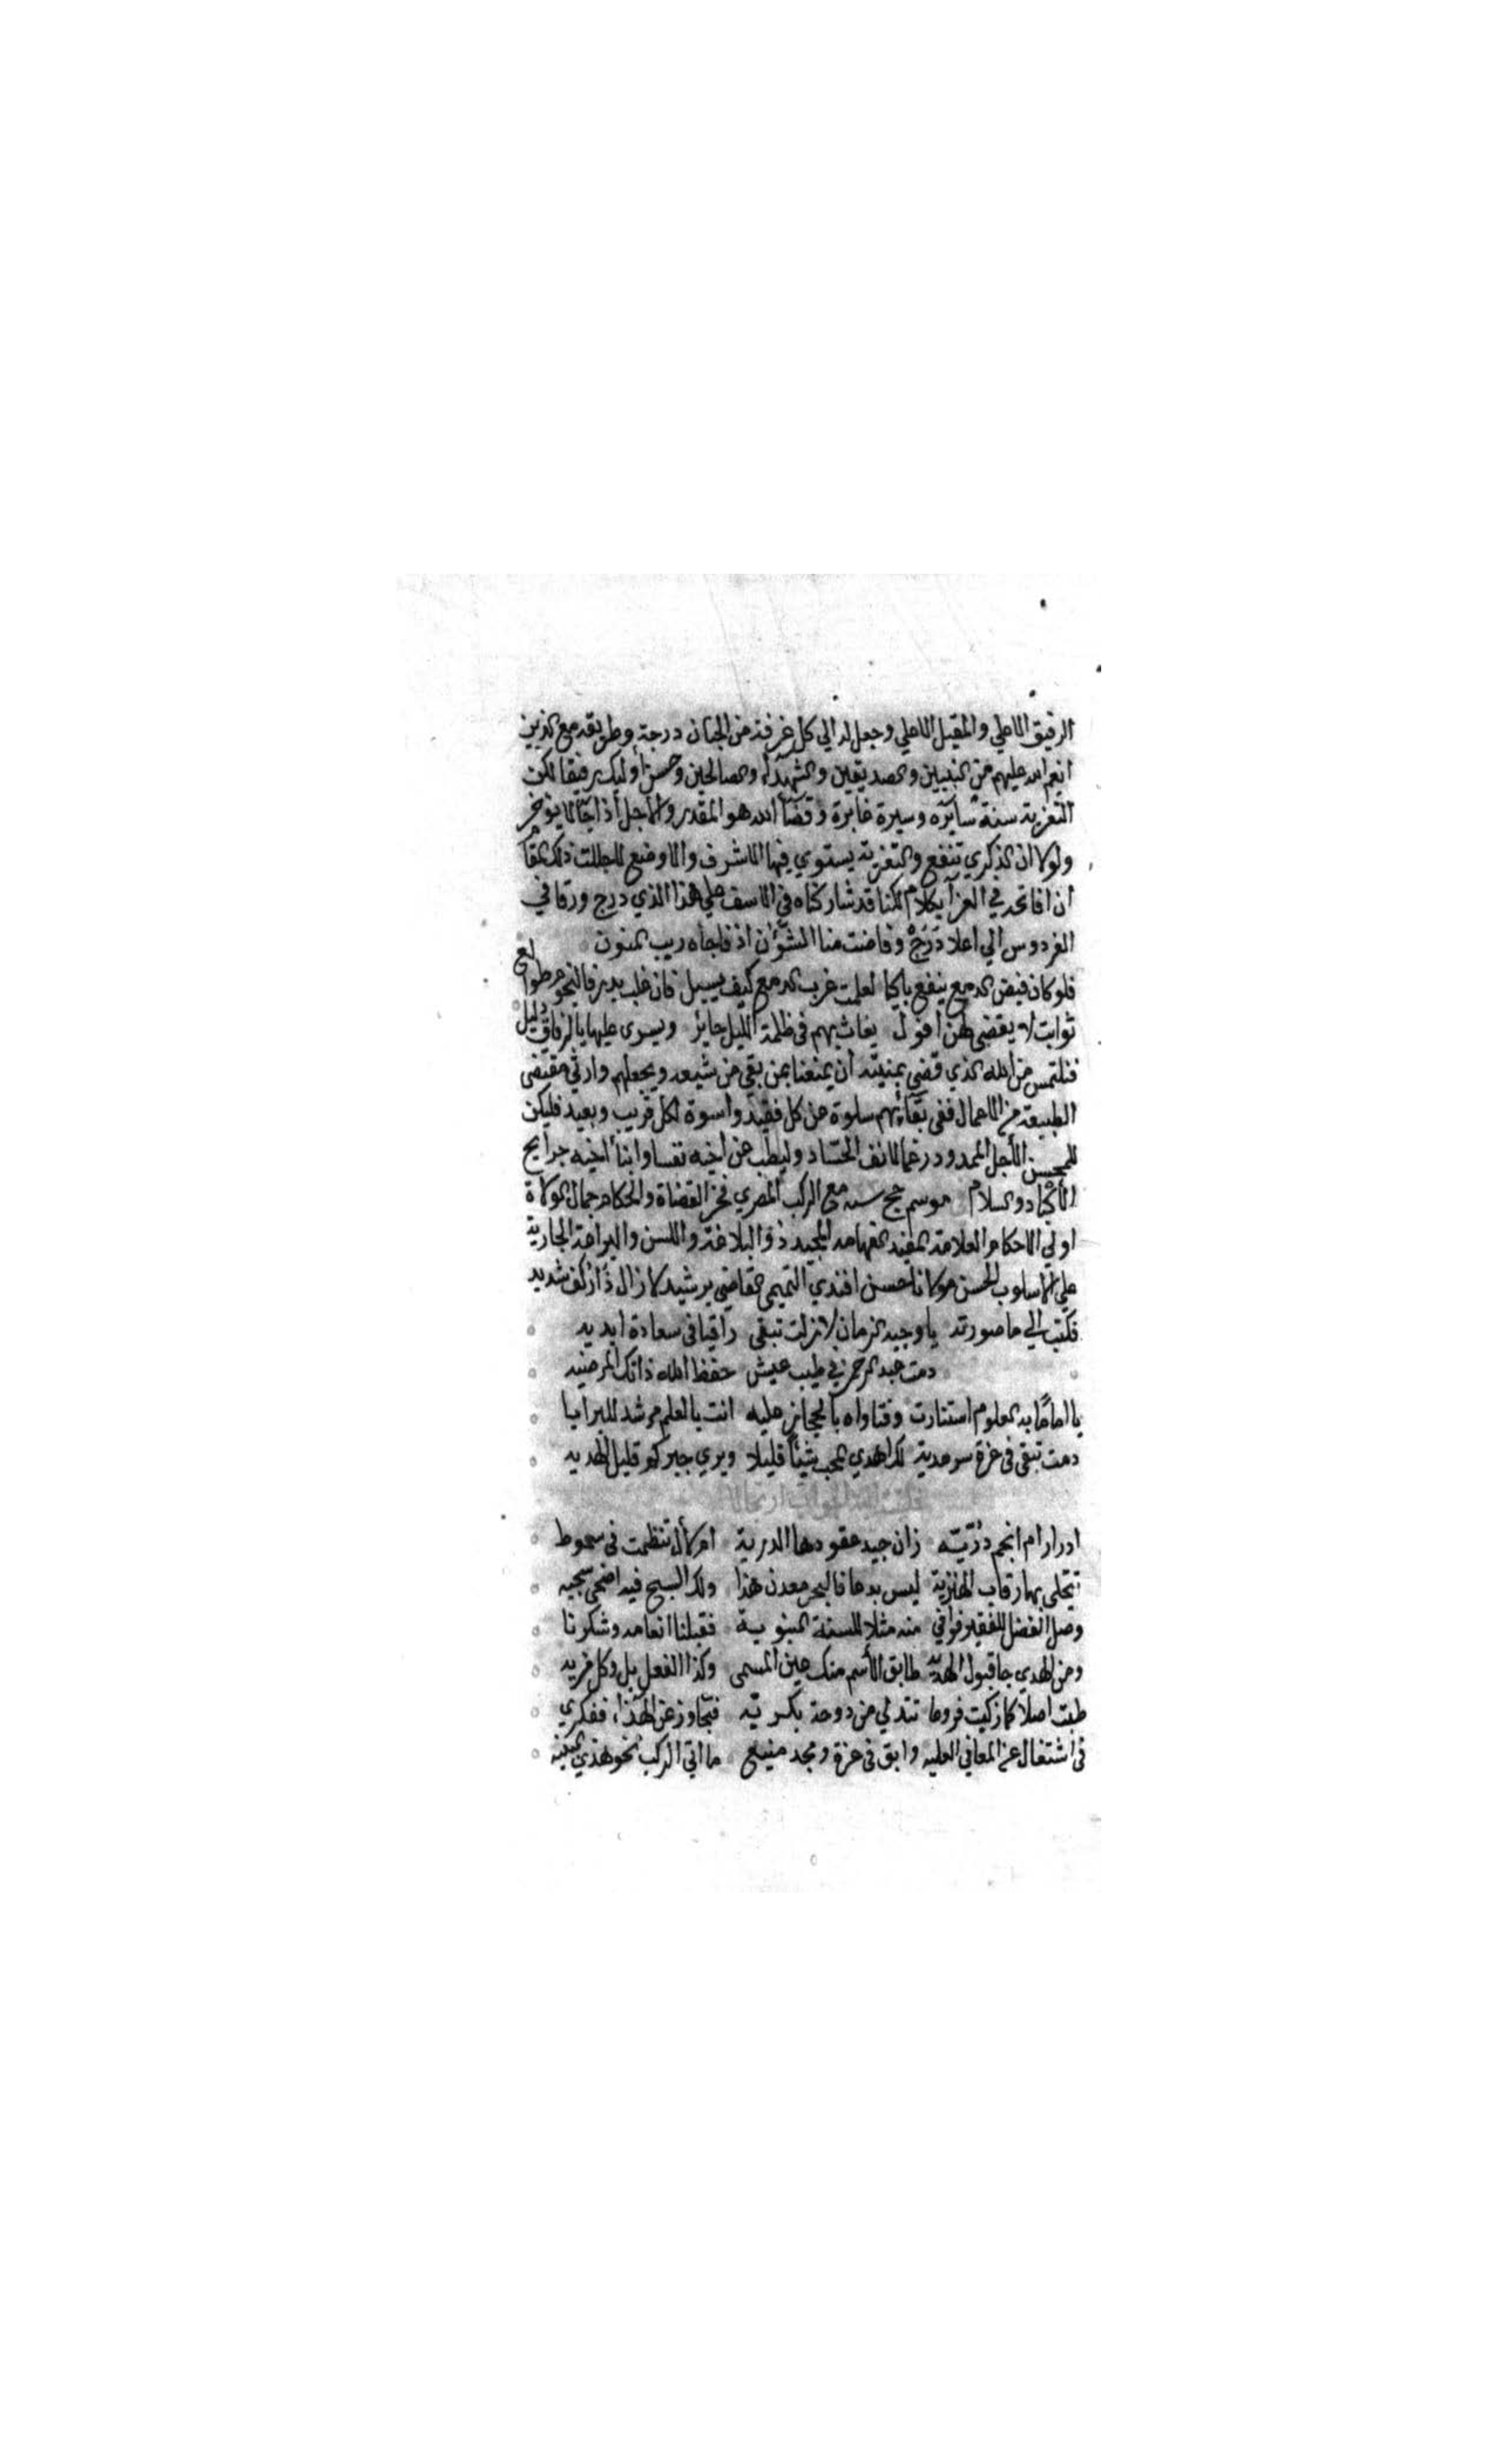 الرفيق الاعلي والمقيل الاعلي وجعل له الي كل غرفة من الجنان درجة وطريقه مع الذين
انعم الله عليهم من النبيين والصديقين والشهدآء والصالحين وحسن أوليك رفيقا لكن
التعزية سنة سايره وسيرة غابرة وقضآ الله هو المقدر والاجل أذا جآ لا يؤخر
ولولا ان الذكري تنفع والتعزية يستوي فيها الاشرف والاوضع لاجللت ذلك المقا
ان افاتحه في العزآ بكلام لكنا قد شاركناه في الاسف علي هذا الذي درج ورقا في
الفردوس الي اعلا درج وفاضت منا الشؤن اذ فاجاه ريب المنون
فلو كان فيض الدمع ينفع باكيا لعلمت غرب الدمع كيف يسيل فان غاب بدر فالنجوم طوالع
ثوابت لا يقضي لهن أفول يغاث بهم في ظلمة الليل حاير ويسري عليها بالرفاق دليل
فنلتمس من الله الذي قضي بمنيته أن يمتعنا بمن بقي من شيعه ويجعلهم وارثي مقتضى
الطبيعة من الاعمال ففي بقآءهم سلوة عن كل فقيد واسوة لكل قريب وبعيد فليكن
للمحسن الأجل الممدود رغما لانف الحساد وليطب عن اخيه نفسا وابنأ اخيه
والسلام موسم حج سنه مع الركب المصري فخر القضاة والحكام جمال الولاة
اولي الاحكام العلامة المفيد الفهامه المجيد ذو البلاغة واللسن والبراعة الجارية
علي الاسلوب الحسن مولانا حسن افندي التميمي القاضي برشيد لا زال ذا ركن شديد
فكتب الي ما صورته يا وحيد الزمان لا زلت تبقى راقيا في سعادة ابديه
دمت عبد الرحمن في طيب عيش حفظ الله ذاتك المرضيه
يا اماما به العلوم استنارت وفتاواه بالحجاز عليه انت بالعلم مرشد للبرايا
دمت تبقى في عزة سرمدية لك اهدي المحب شيئا قليلا ويري جبركم قليل الهديه
فكتبت اليه الجواب ارتجالا
ادرارام انجم دريته زان جيد عقودها الدرية ام لأل تنظمت في سموط
تتحلى بها رقاب ليس بدعا فالبحر معدن هذا ولك السبح فيه اضحى سجيه
وصل الفضل للفقير فوافي منه مثلا للسنة النبويه فقبلنا انعامه وشكرنا
ومن الهدي جا قبول الهديه طابق الأسم منك عين المسمى وكذا الفعل بل وكل فريه
طبت اصلا كما زكيت فروعا تتدلي من دوحة بكريه فتجاوز عن الهذا، ففكري
في اشتغال عن المعاني العليه وابق في عزة ومجد منيع ما اتي الركب نحو هذي البنيه